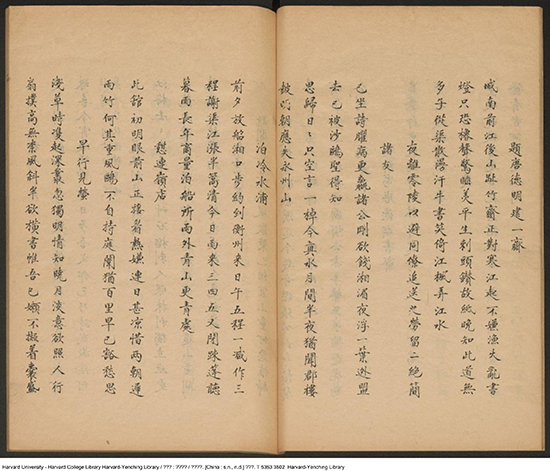 題唐德明建一齋
南前江後山趾竹齋正對寒江起不嫌漁火亂書
燈只恐櫓聲驚睡美平生刺頭鑽故紙晚知此道無
多子從渠散漫汗牛書笑倚江楓弄江水
夜離零陵以避同僚追送之勞留二絕簡
諸友
已坐詩癯病更羸諸公剛欲餞湘湄夜浮一葉逃盟
去已被沙鷗聖得知
思歸日〻只空言一棹今真水月間半夜猶聞郡樓
鼓明朝應失永州山
泊冷水浦
前夕放船湘口步約到衡州來日午五程一減作三
程謝渠江漲半篙清今日雨來三四五又聞疎蓬聽
暮雨長年商量泊船所雨外青山更青處
連嶺店
此館初明眼前山正接着無嫌連日甚凉惜兩朝過
雨竹何其重風鷗不自持庭闈猶百里早已豁愁思
早行見螢
淺草時起深叢忽獨明情知曉月淡意欲照人行
扇撲高無奈風斜半欲橫書帷吾已嬾不擬着囊盛
Harvard University - Harvard College Library Harvard-Yenching Library / ??? : ???? / ????. [China : s.n., n.d.] ???. T 5353 3602 Harvard-Yenching Library